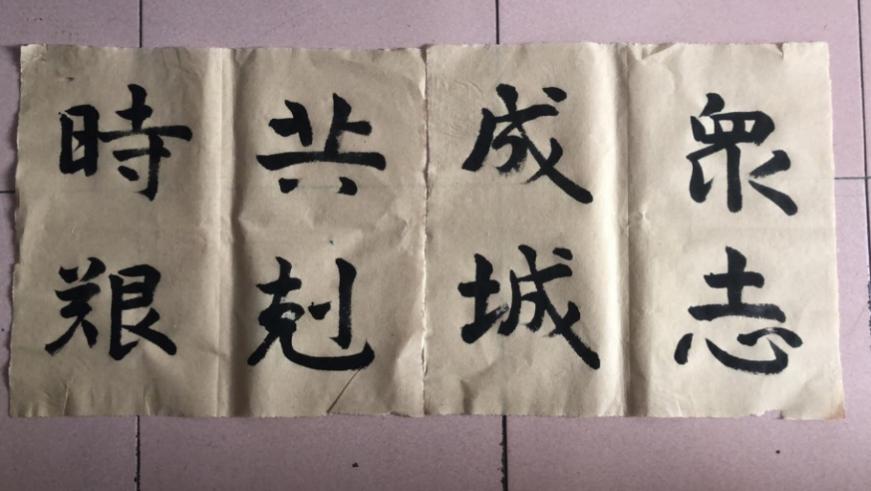 衆志
成城
共剋
時艱